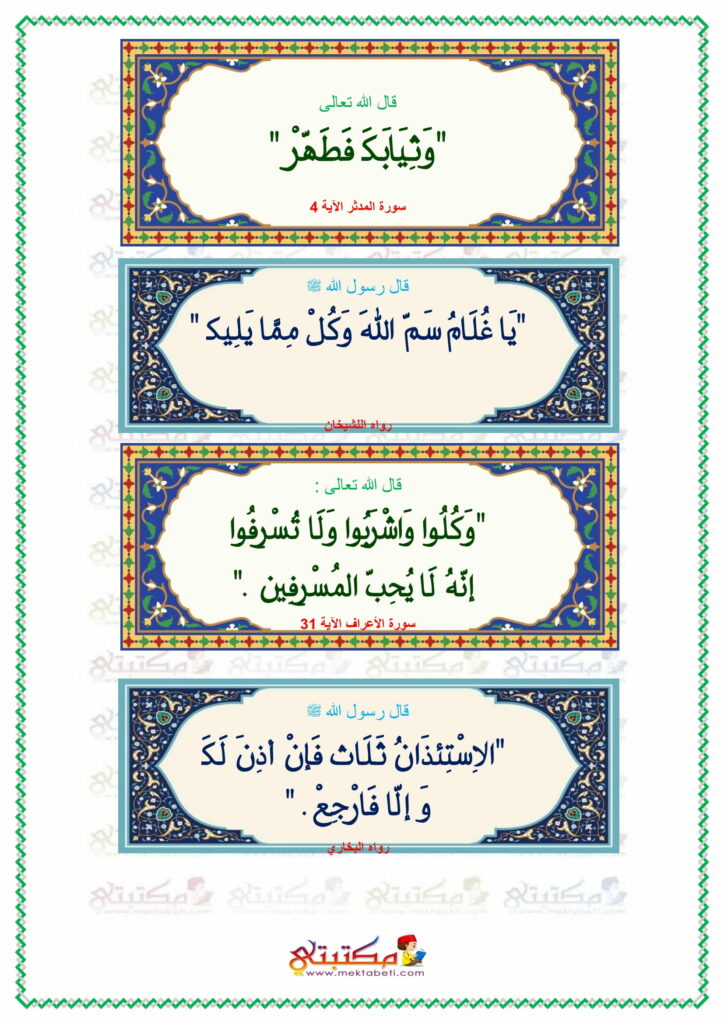 قال الله تعالى
"وَثِيَابَكَ فَطَهّرْ"
سورة المدثر الآية 4
قال رسول الله ﷺ
"يَا غُلَامُ سَمّ اللهَ وَكُلْ مِمَّا يَلِيكَ "
رواه اللشيخان
قال الله تعالى :
"وَكُلُوا وَاشْرَبُوا وَلَا تُسْرِفُوا
إنّهُ لَا يُحِبّ المُسْرِفِين ."
سورة الأعراف الآية 31
قال رسول الله ﷺ
"الاِسْتِئذَانُ ثَلَاث فَإنْ أذِنَ لَكَ
وَ إلّا فَارْجِعْ . "
رواه البخاري
مكتبتي
www.mektabeti.com